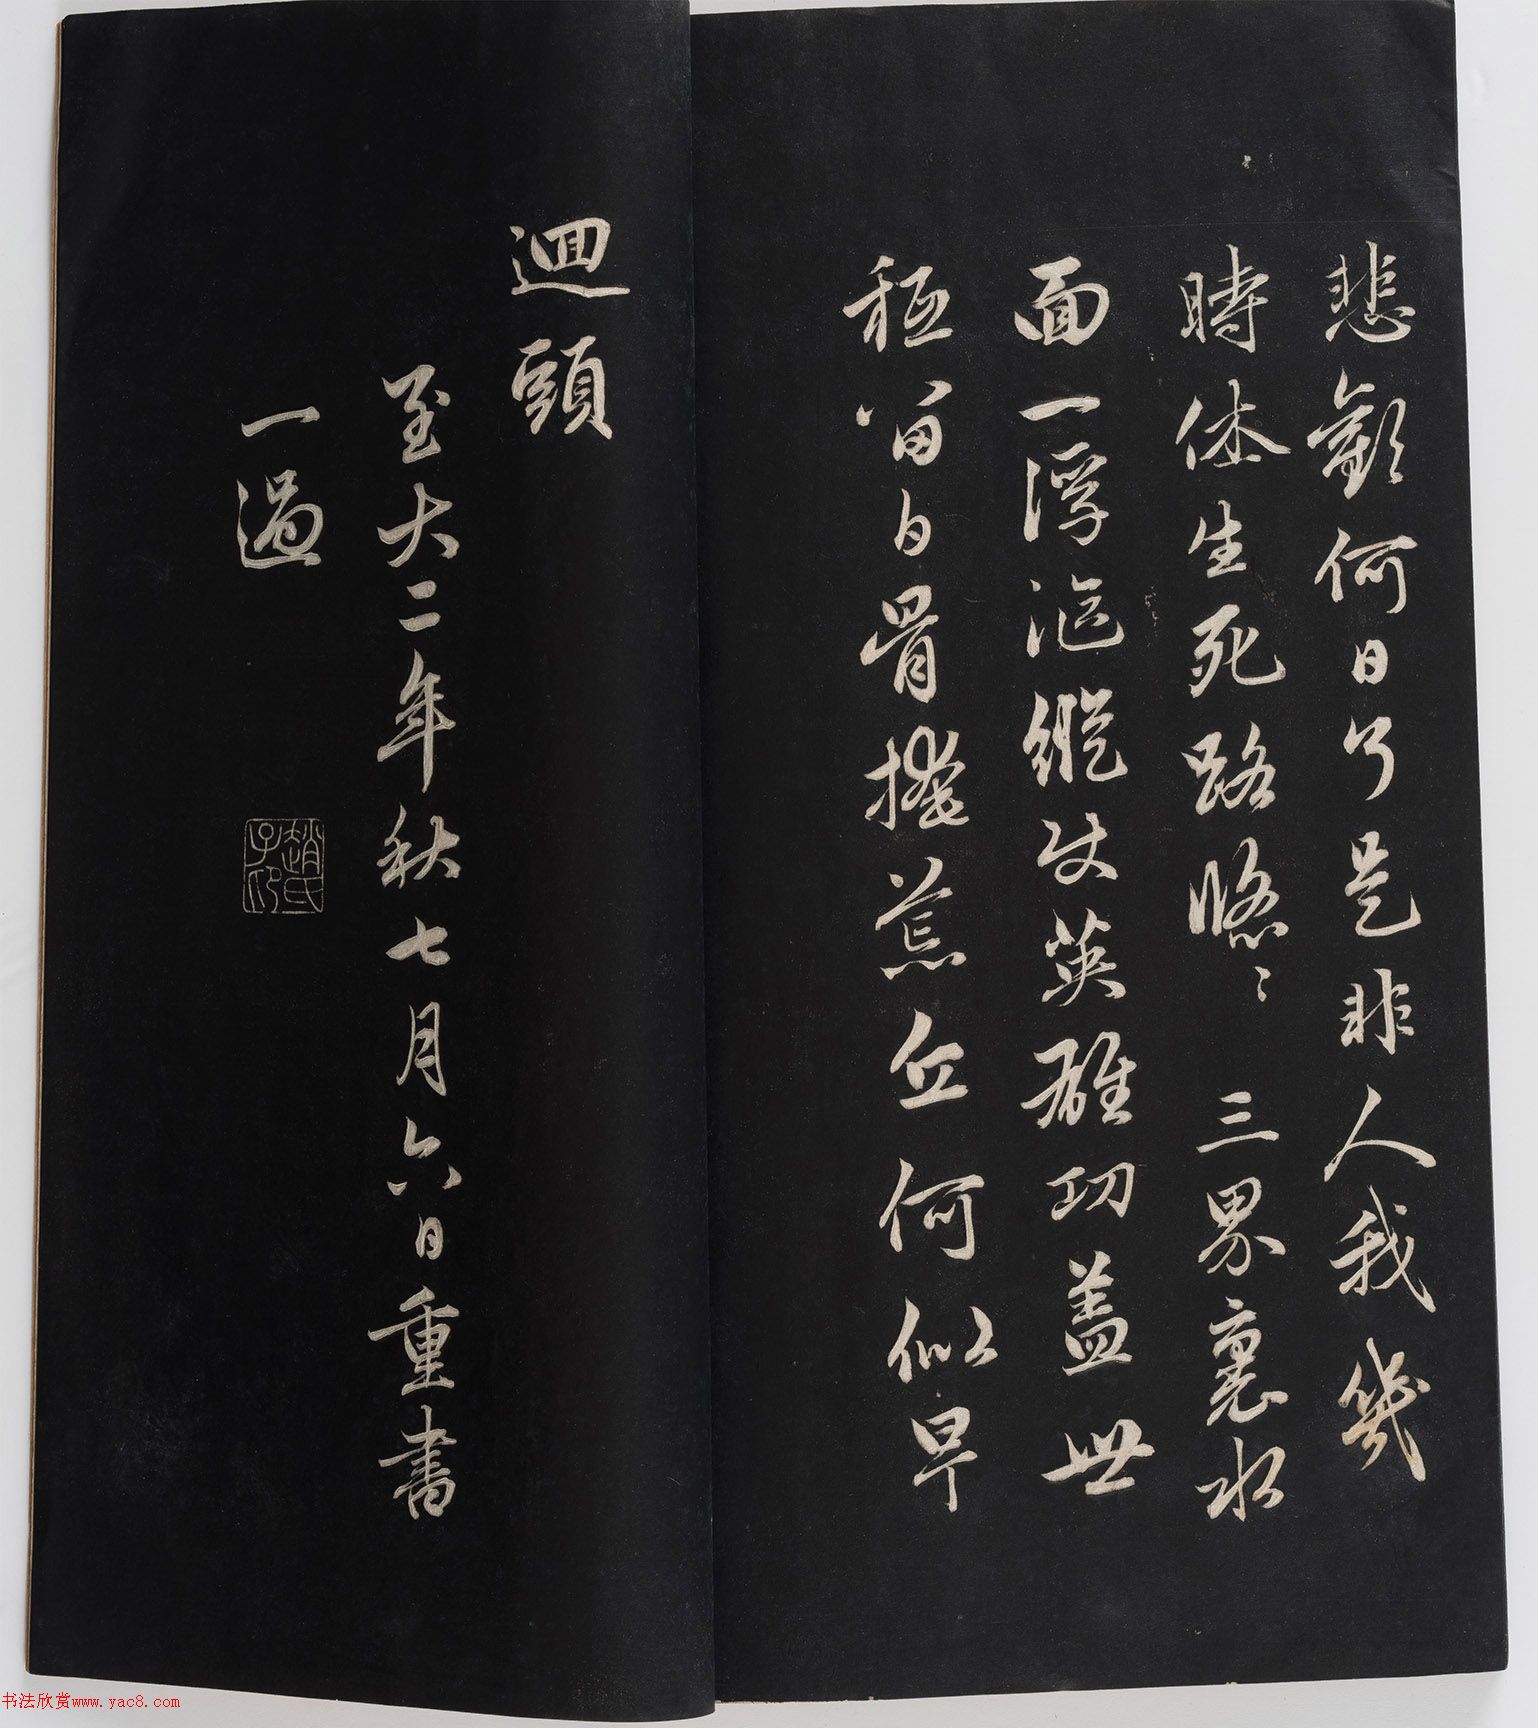 悲歡何日了是非人我幾
時休生死路悠〻　三界裏水
面一浮漚縱使英雄功蓋世
秪留白骨掩荒丘何似早
迴頭
至大二年秋七月六日重書
一過
趙氏子印
书法欣赏www.yac8.com